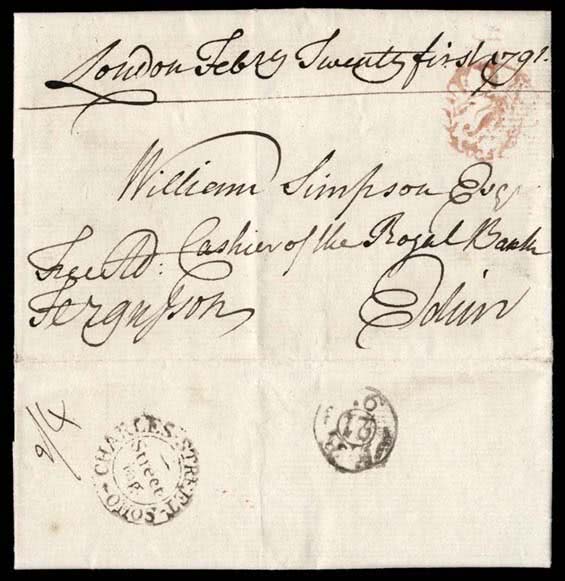 London Febry Twenty first 1791.
William Simpson Esqr
Cashier of the Royal Bank
Free Ad: Fergusson
Edinr
2/4
CHARLES STREET SOHO
Street
21